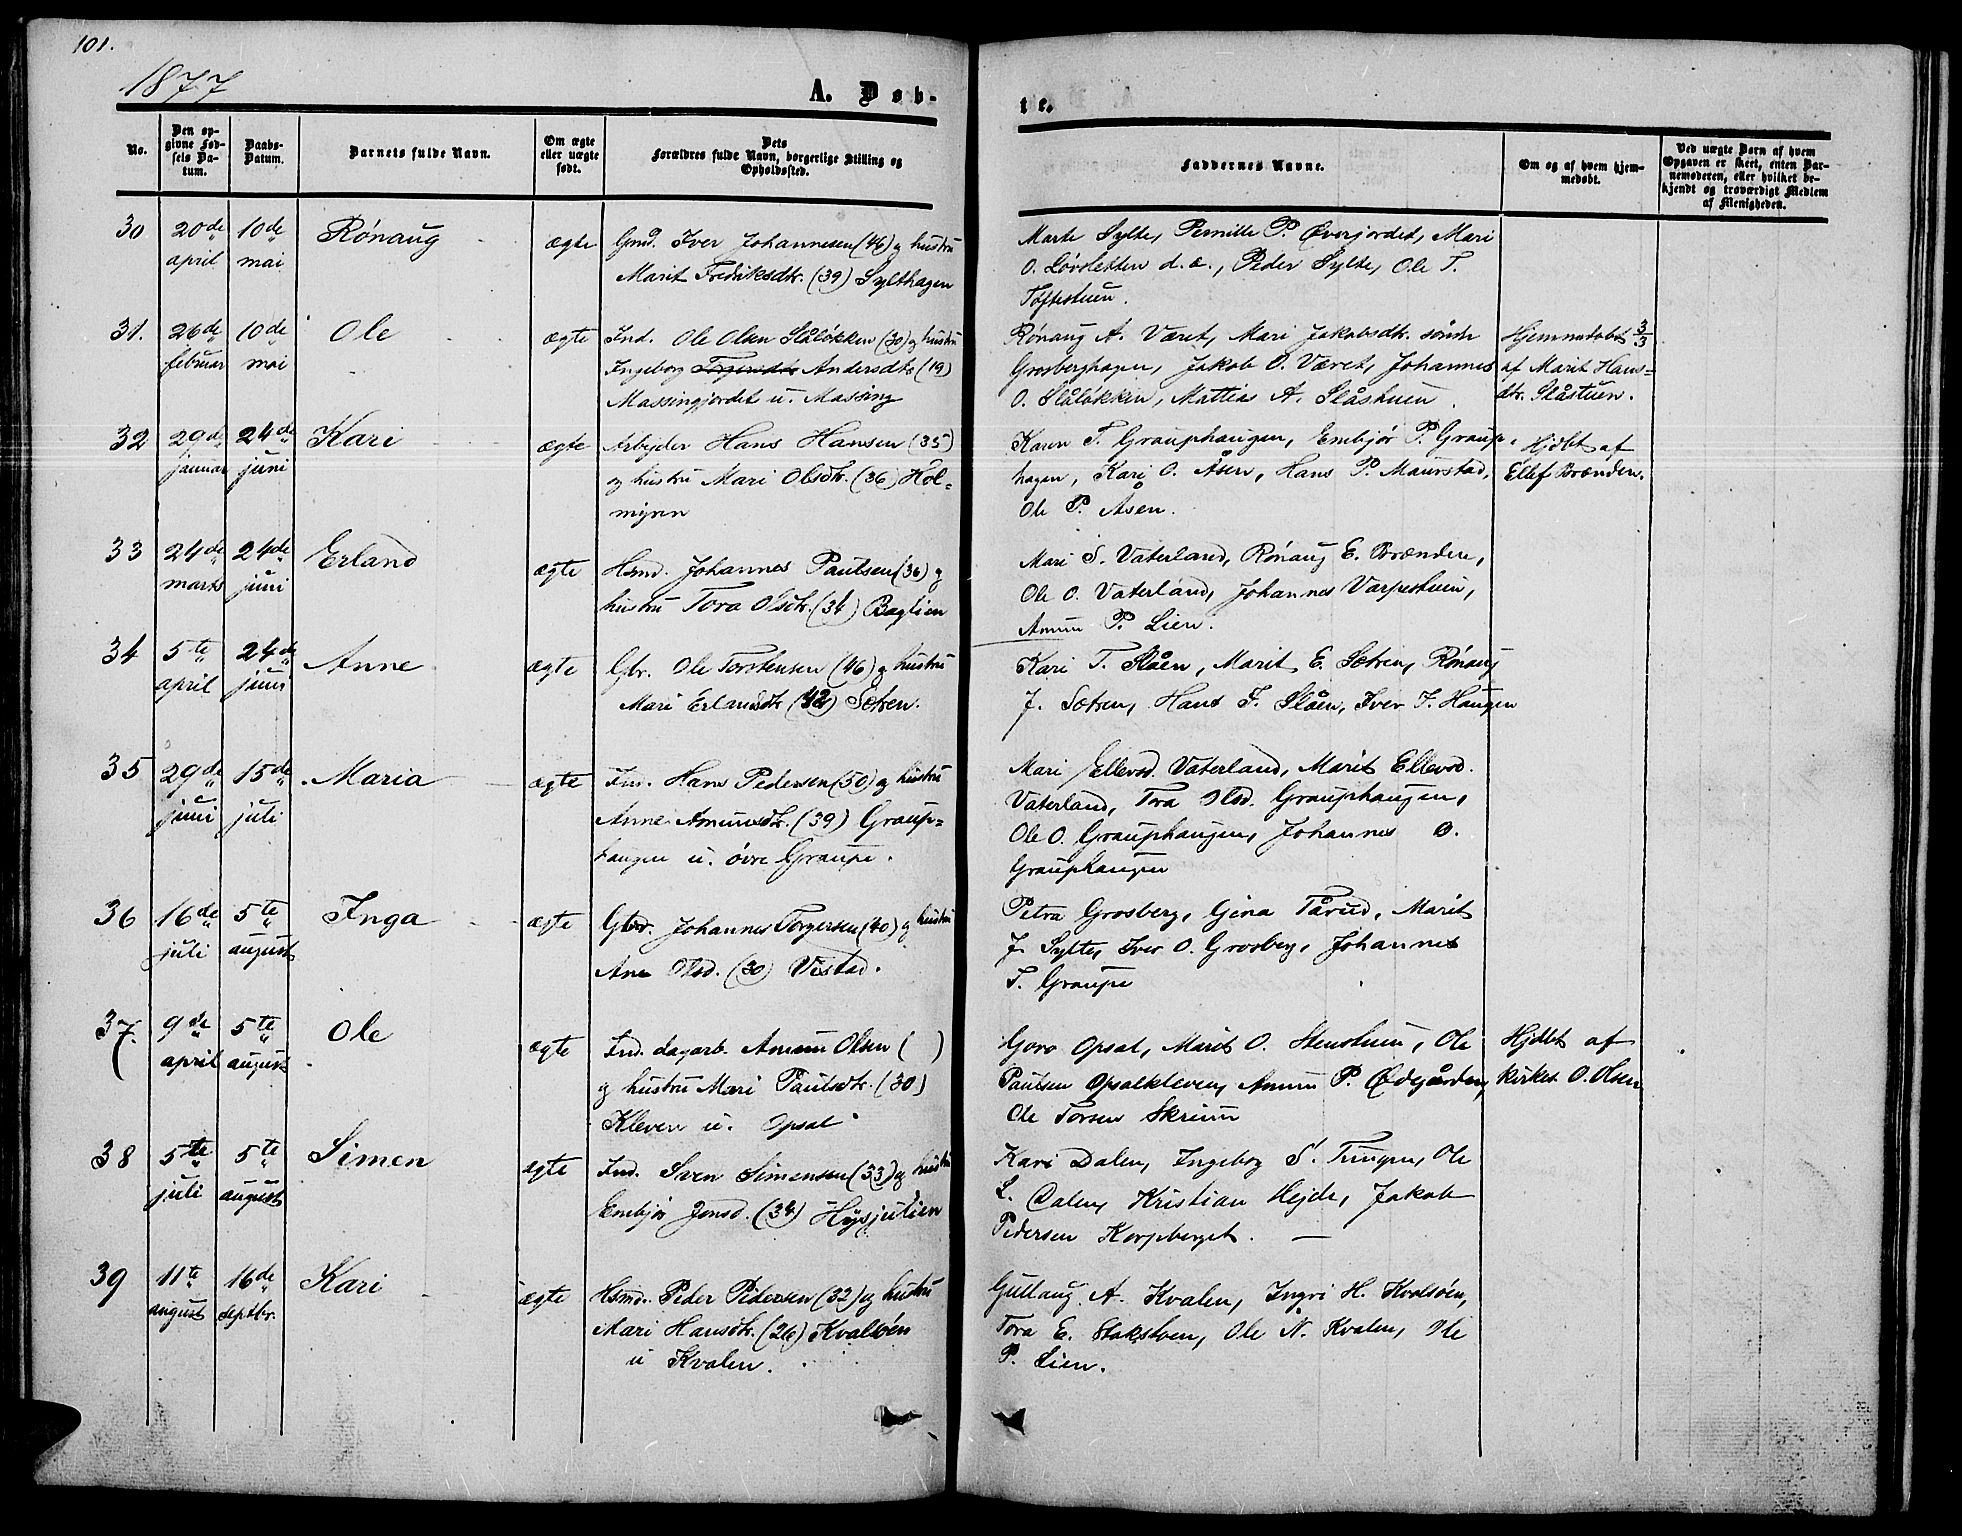 101.
1877
A. Døb-
te.
No.
Den op-
givne Fød-
sels Da-
tum.
Daabs-
Datum.
Barnets fulde Navn.
Om ægte
eller uægte
født.
Dets
Forældres fulde Navn, borgerlige Stilling og
Opholdssted.
Faddernes Navne.
Om og af hvem hjem-
medøbt.
Ved uægte Barn af hvem
Opgaven er skeet, enten Bar-
nemoderen, eller hvilket be-
kjendt og troværdigt Medlem
af Menigheden.
30 20de april 10de mai Rønaug ægte
Gmd. Iver Johannesen (46) og hustru
Marit Fredriksdtr. (39) Sylthagen
Marte Sylte, Pernille P. Øverjordet, Mari
O. Løvsletten d.æ., Peder Sylte, Ole T.
Toftestuen.
31. 26de februar 10de mai Ole ægte
Ind. Ole Olsen Slåløkken (30) og hustru
Ingeborg Andersdtr (19)
Massingjordet u. Massing
Rønaug A. Været, Mari Jakobsdtr. søndr
Grosberghagen, Jakob O. Været, Johannes
O. Slåløkken, Mattias A. Slåstuen.
Hjemmedøbt 3/3
af Marit Hans=
dtr. Slåstuen.
32 29de januar 24de juni Kari ægte
Arbejder Hans Hansen (35)
og hustru Mari Olsdtr. (36) Hol=
myren
Karen T. Grauphaugen, Embjør P. Graup-
hagen, Kari O. Åsen, Hans P. Maurstad,
Ole P. Åsen.
Hjdbt af
Ellef Brænden.
33 24de marts 24de juni Erland ægte
Hsmd. Johannes Paulsen (36) og
hustru Tora Olsdtr. (34) Baglien
Mari S. Vaterland, Rønaug E. Brænden,
Ole O. Vaterland, Johannes Varpestuen,
Amun P. Lien.
34 5te april 24de juni Anne ægte
Gbr. Ole Torstensen (46) og hustru
Mari Erlandsdtr (42) Sætren.
Kari T. Slåen, Marit E. Sætren, Rønaug
J. Sætren, Hans F. Slåen, Iver J. Haugen
35 29de juni 15de juli Maria ægte
Ind. Hans Pedersen (50) og hustru
Anne Amunsdtr. (39) Graup=
haugen u. øvre Graupe.
Mari Ellevsd. Vaterland, Marit Ellevsd.
Vaterland, Tora Olsd. Grauphaugen,
Ole O. Grauphaugen, Johannes O.
Grauphaugen
36 16de juli 5te august Inga ægte
Gbr. Johannes Torgersen (40) og hustru
Ane Olsd. (30) Vistad.
Petra Grosberg, Gina Tårud, Marit
J. Sylte, Iver O. Grosberg, Johannes
T. Graupe
37. 9de april 5te august Ole ægte
Ind. dagarb. Amun Olsen ( )
og hustru Mari Paulsdtr. (30)
Kleven u. Opsal
Goro Opsal, Marit O. Stenstuen, Ole
Paulsen Opsalkleven, Amun P. Ødegården,
Ole Torsen Skrium
Hjdbt af
kirkes. O. Olsen
38 5te juli 5te august Simen ægte
Ind. Sven Simensen (33) og hustru
Embjør Jonsd. (34) Høgsjulien
Kari Dalen, Ingeborg S. Ole
L. Dalen, Kristian Hejde, Jakob
Pedersen Korpberget.
39 11te august 16de septbr. Kari ægte
Hsmd. Peder Pedersen (32) og hustru
Mari Hansdtr. (26) Kvalsøen
u Kvalen.
Gullaug A. Kvalen, Ingri H. Kvalsøen,
Tora E. Stakstuen, Ole N. Kvalen, Ole
P. Lien.